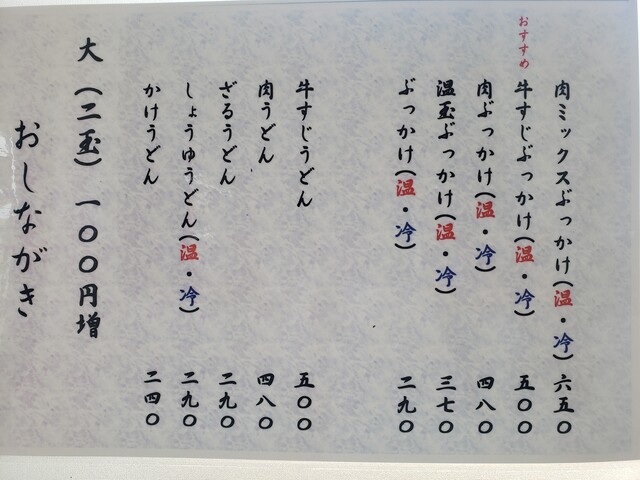 肉ミックスぶっかけ(温・冷) 六五〇
おすすめ
牛すじぶっかけ(温・冷) 五〇〇
肉ぶっかけ(温・冷) 四八〇
温玉ぶっかけ(温・冷) 三七〇
ぶっかけ(温・冷) 二九〇
牛すじうどん 五〇〇
肉うどん 四八〇
ざるうどん 二九〇
しょうゆうどん(温・冷) 二九〇
かけうどん 二四〇
大(二玉)一〇〇円増
おしながき